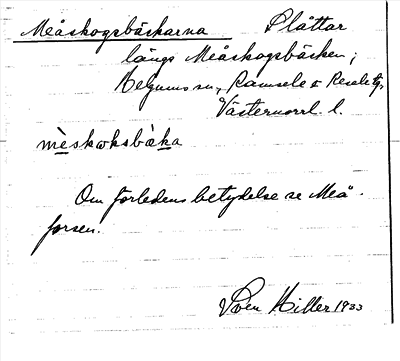 Meåskogsbäckarna Slåttar
längs Meåskogsbäcken;
Helgums sn, Ramsele o Resele tg,
Västernorrl. l.
mèskωksbàka
Om förledens betydelse se Meå-
forsen.
Sven Hiller 1933